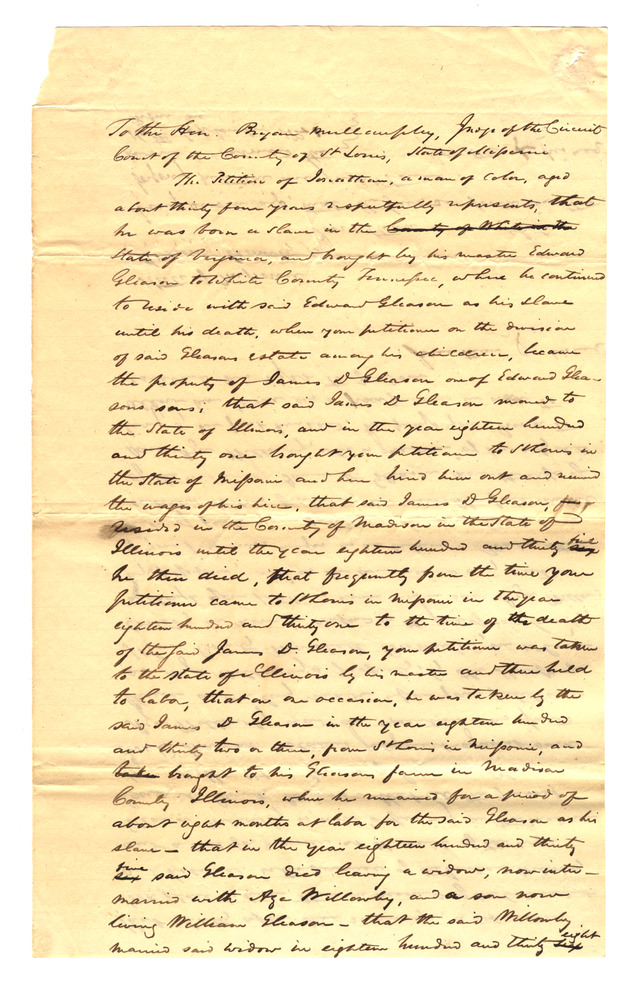 To the Hon. Bryan Mullanphy, Judge of the Circuit
Court of the County of St Louis, State of Missouri
The Petition of Jonathan, a man of color, aged
about thirty four years respectfully represents, that
he was born a slave in the County of White in the
State of Virginia, and brought by his master Edward
Gleason to White County Tennessee, where he continued
to reside with said Edward Gleason as his slave
until his death, when your petitioner on the division
of said Gleasons estate among his children, became
the property of James D Gleason one of Edward Glea-
sons sons; that said James D Gleason moved to
the State of Illinois, and in the year eighteen hundred
and thirty one brought your petitioner to St Louis in
the State of Missouri and here hired him out and received
the wages of his hire, that said James D Gleason,
resided in the County of Madison in the State of
Illinois until the year eighteen hundred and thirty five six
he then died, that frequently from the time your
petitioner came to St Louis in Missouri in the year
eighteen hundred and thirty one to the time of the death
of the said James D. Gleason, your petitioner was taken
to the state of Illinois by his master and there held
to labor, that on one occasion, he was taken by the
said James D Gleason in the year eighteen hundred
and thirty two or three, from St Louis in Missouri, and
taken brought to his Gleasons farm in Madison
County Illinois, where he remained for a period of
about eight months at labor for the said Gleason as his
slave – that in the year eighteen hundred and thirty
five six said Gleason died leaving a widow, now inter-
married with Aza Willowby, and a son now
living William Gleason – that the said Willowby
married said widow in eighteen hundred and thirty eight six